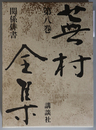 蕪村全集
第八巻
関係俳書
講談社